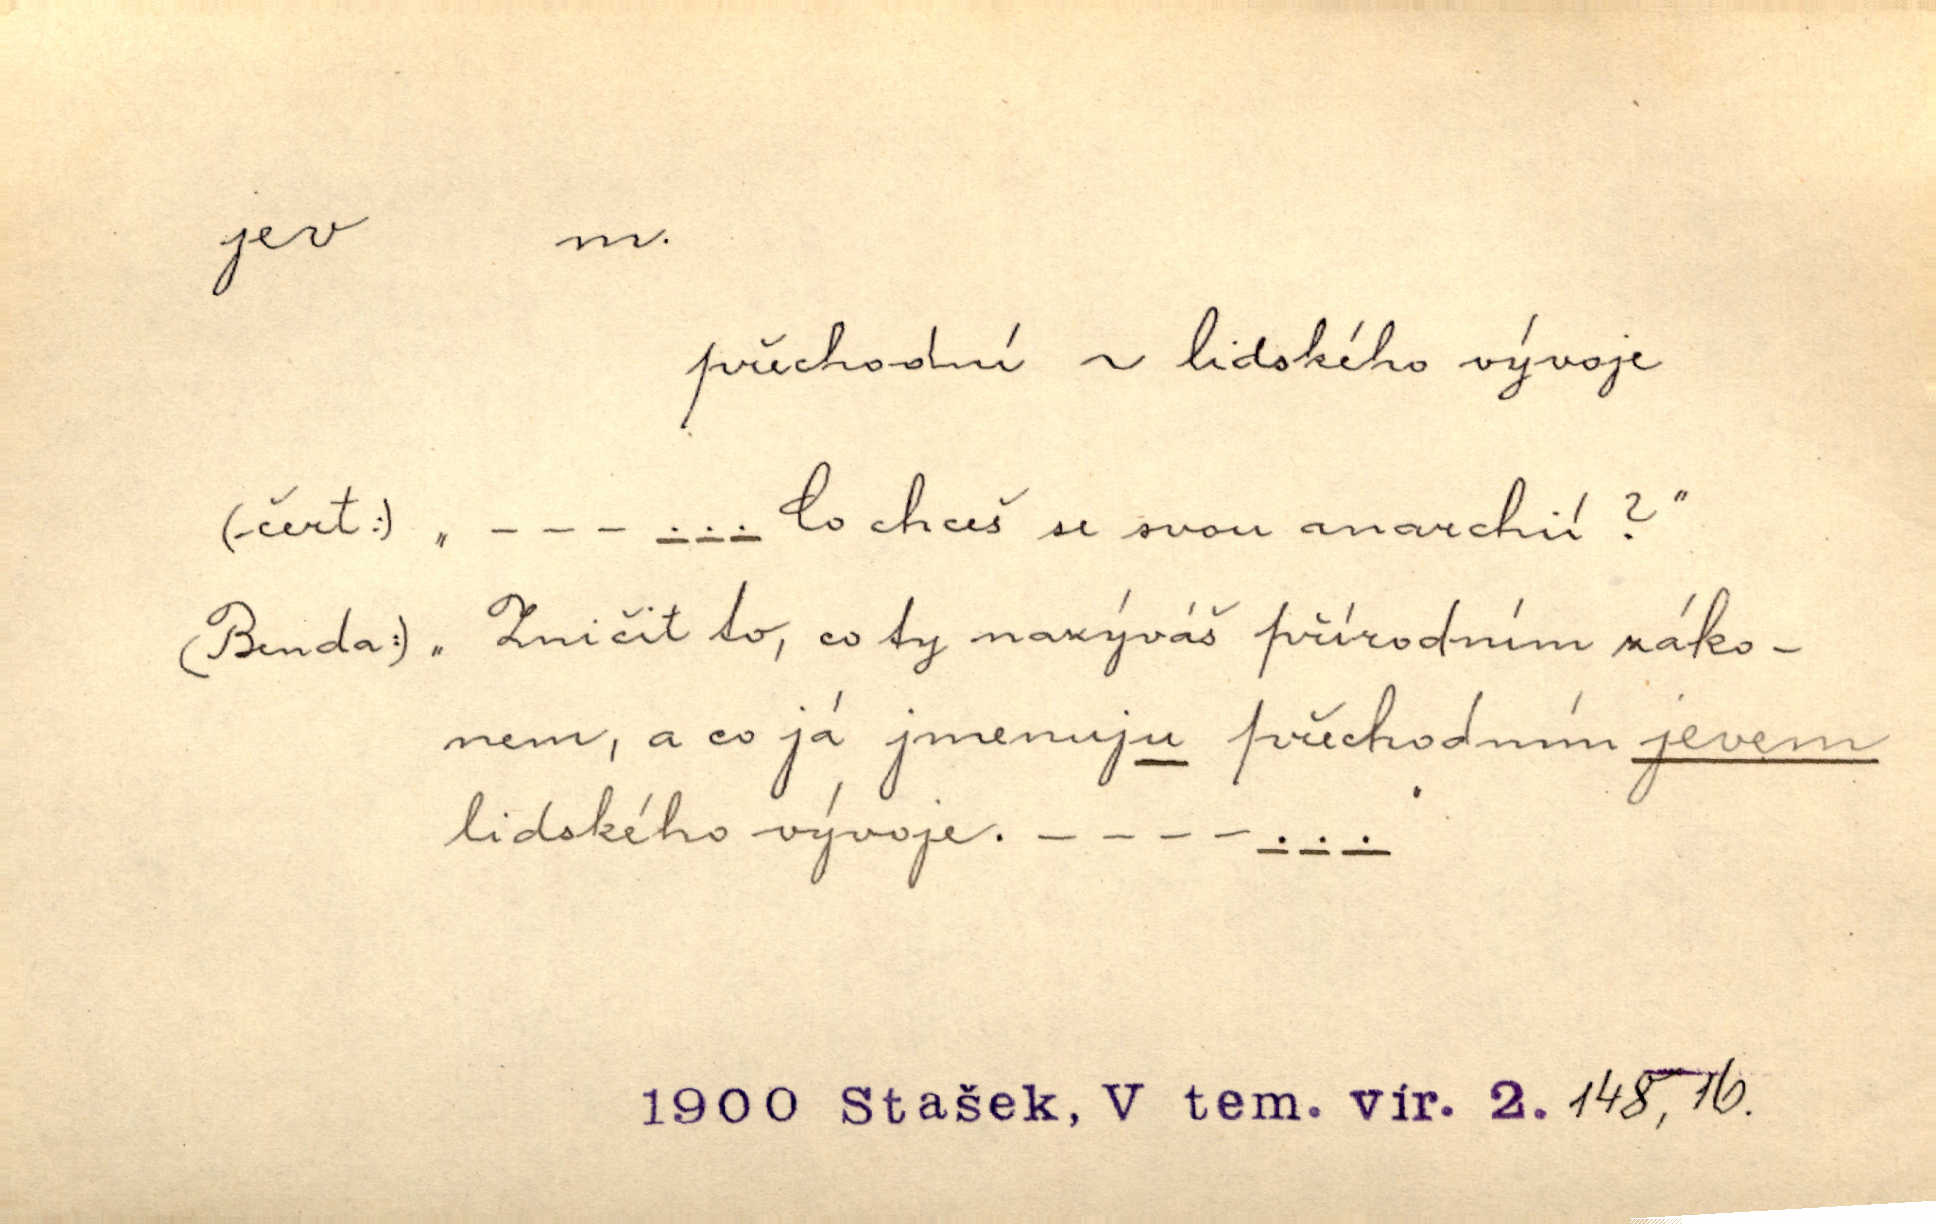 jev m.
přechodní ~ lidského vývoje
(čert:) „ – – – . . . Co chceš se svou anarchií ?“
(Benda:) „ Zničit to, co ty nazýváš přírodním záko-
nem, a co já jmenuju přechodním jevem
lidského vývoje. – – – – . . .
1900 Stašek, V tem. vír. 2. 148, 16.